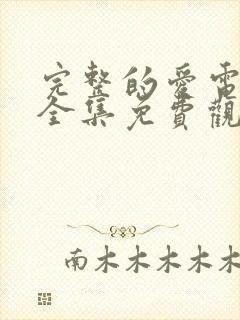 完整的愛電
全集免費觀
南木木木木木